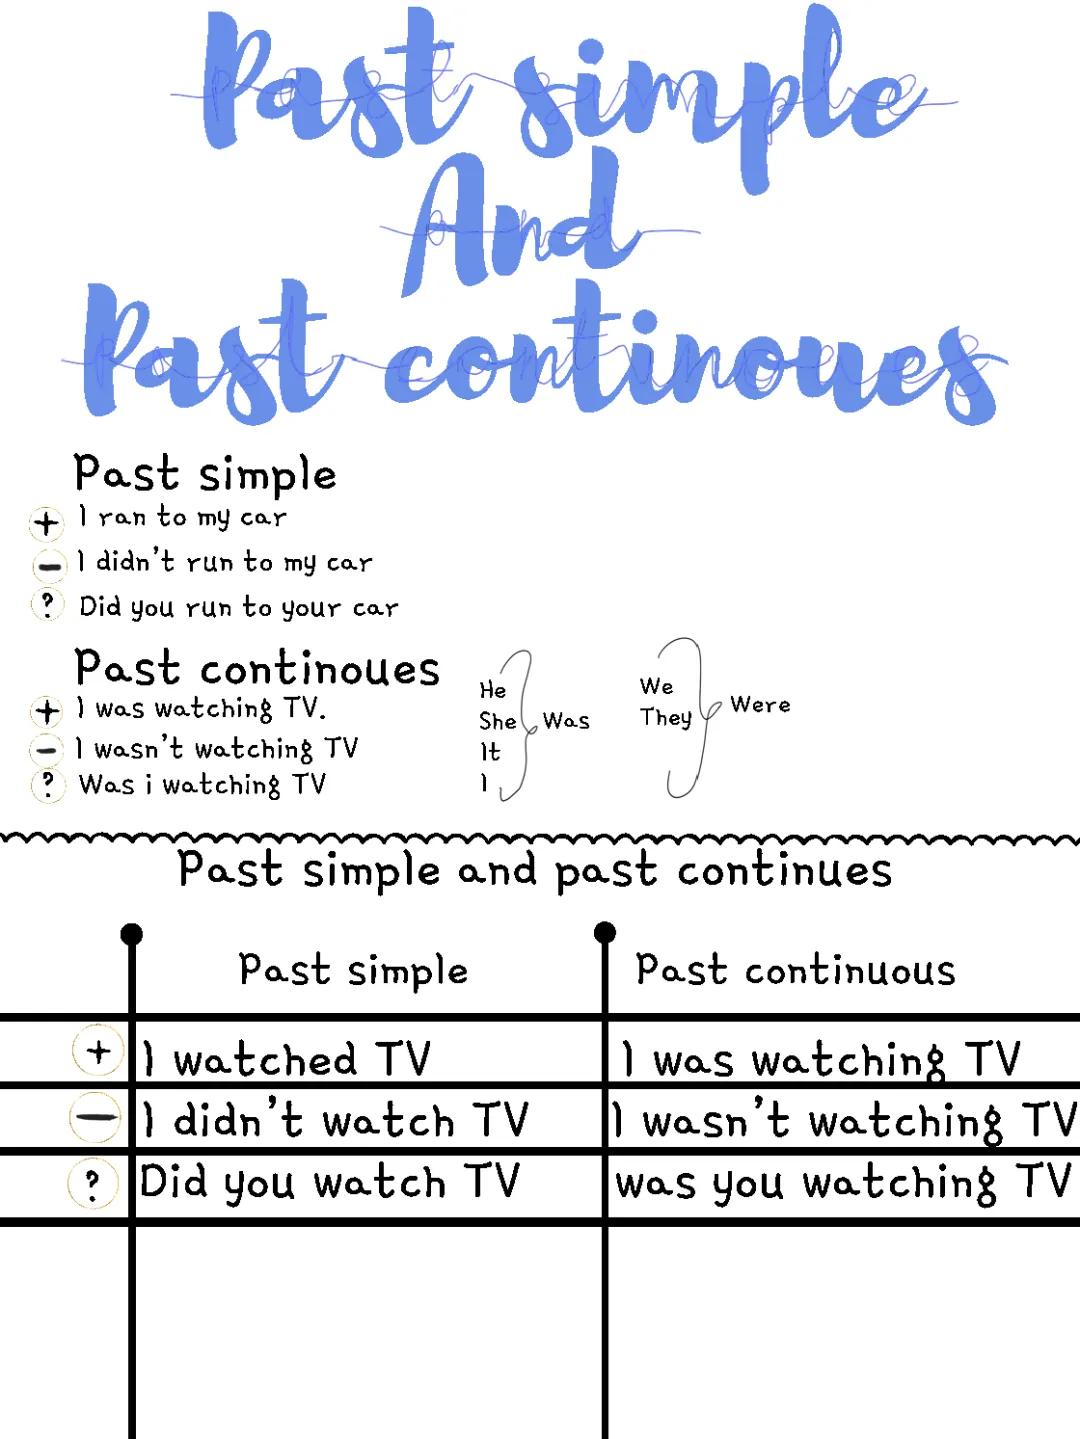 Past simple
And
Past continoues
Past simple
+ I ran to my car
- I didn't run to my car
? Did you run to your car
Past continoues
+ I was watching TV.
- I wasn't watching TV
? Was i watching TV
He
She
It
I
Was
We
They
Were
Past simple and past continues
Past simple Past continuous
+ I watched TV I was watching TV
- I didn't watch TV I wasn't watching TV
? Did you watch TV was you watching TV